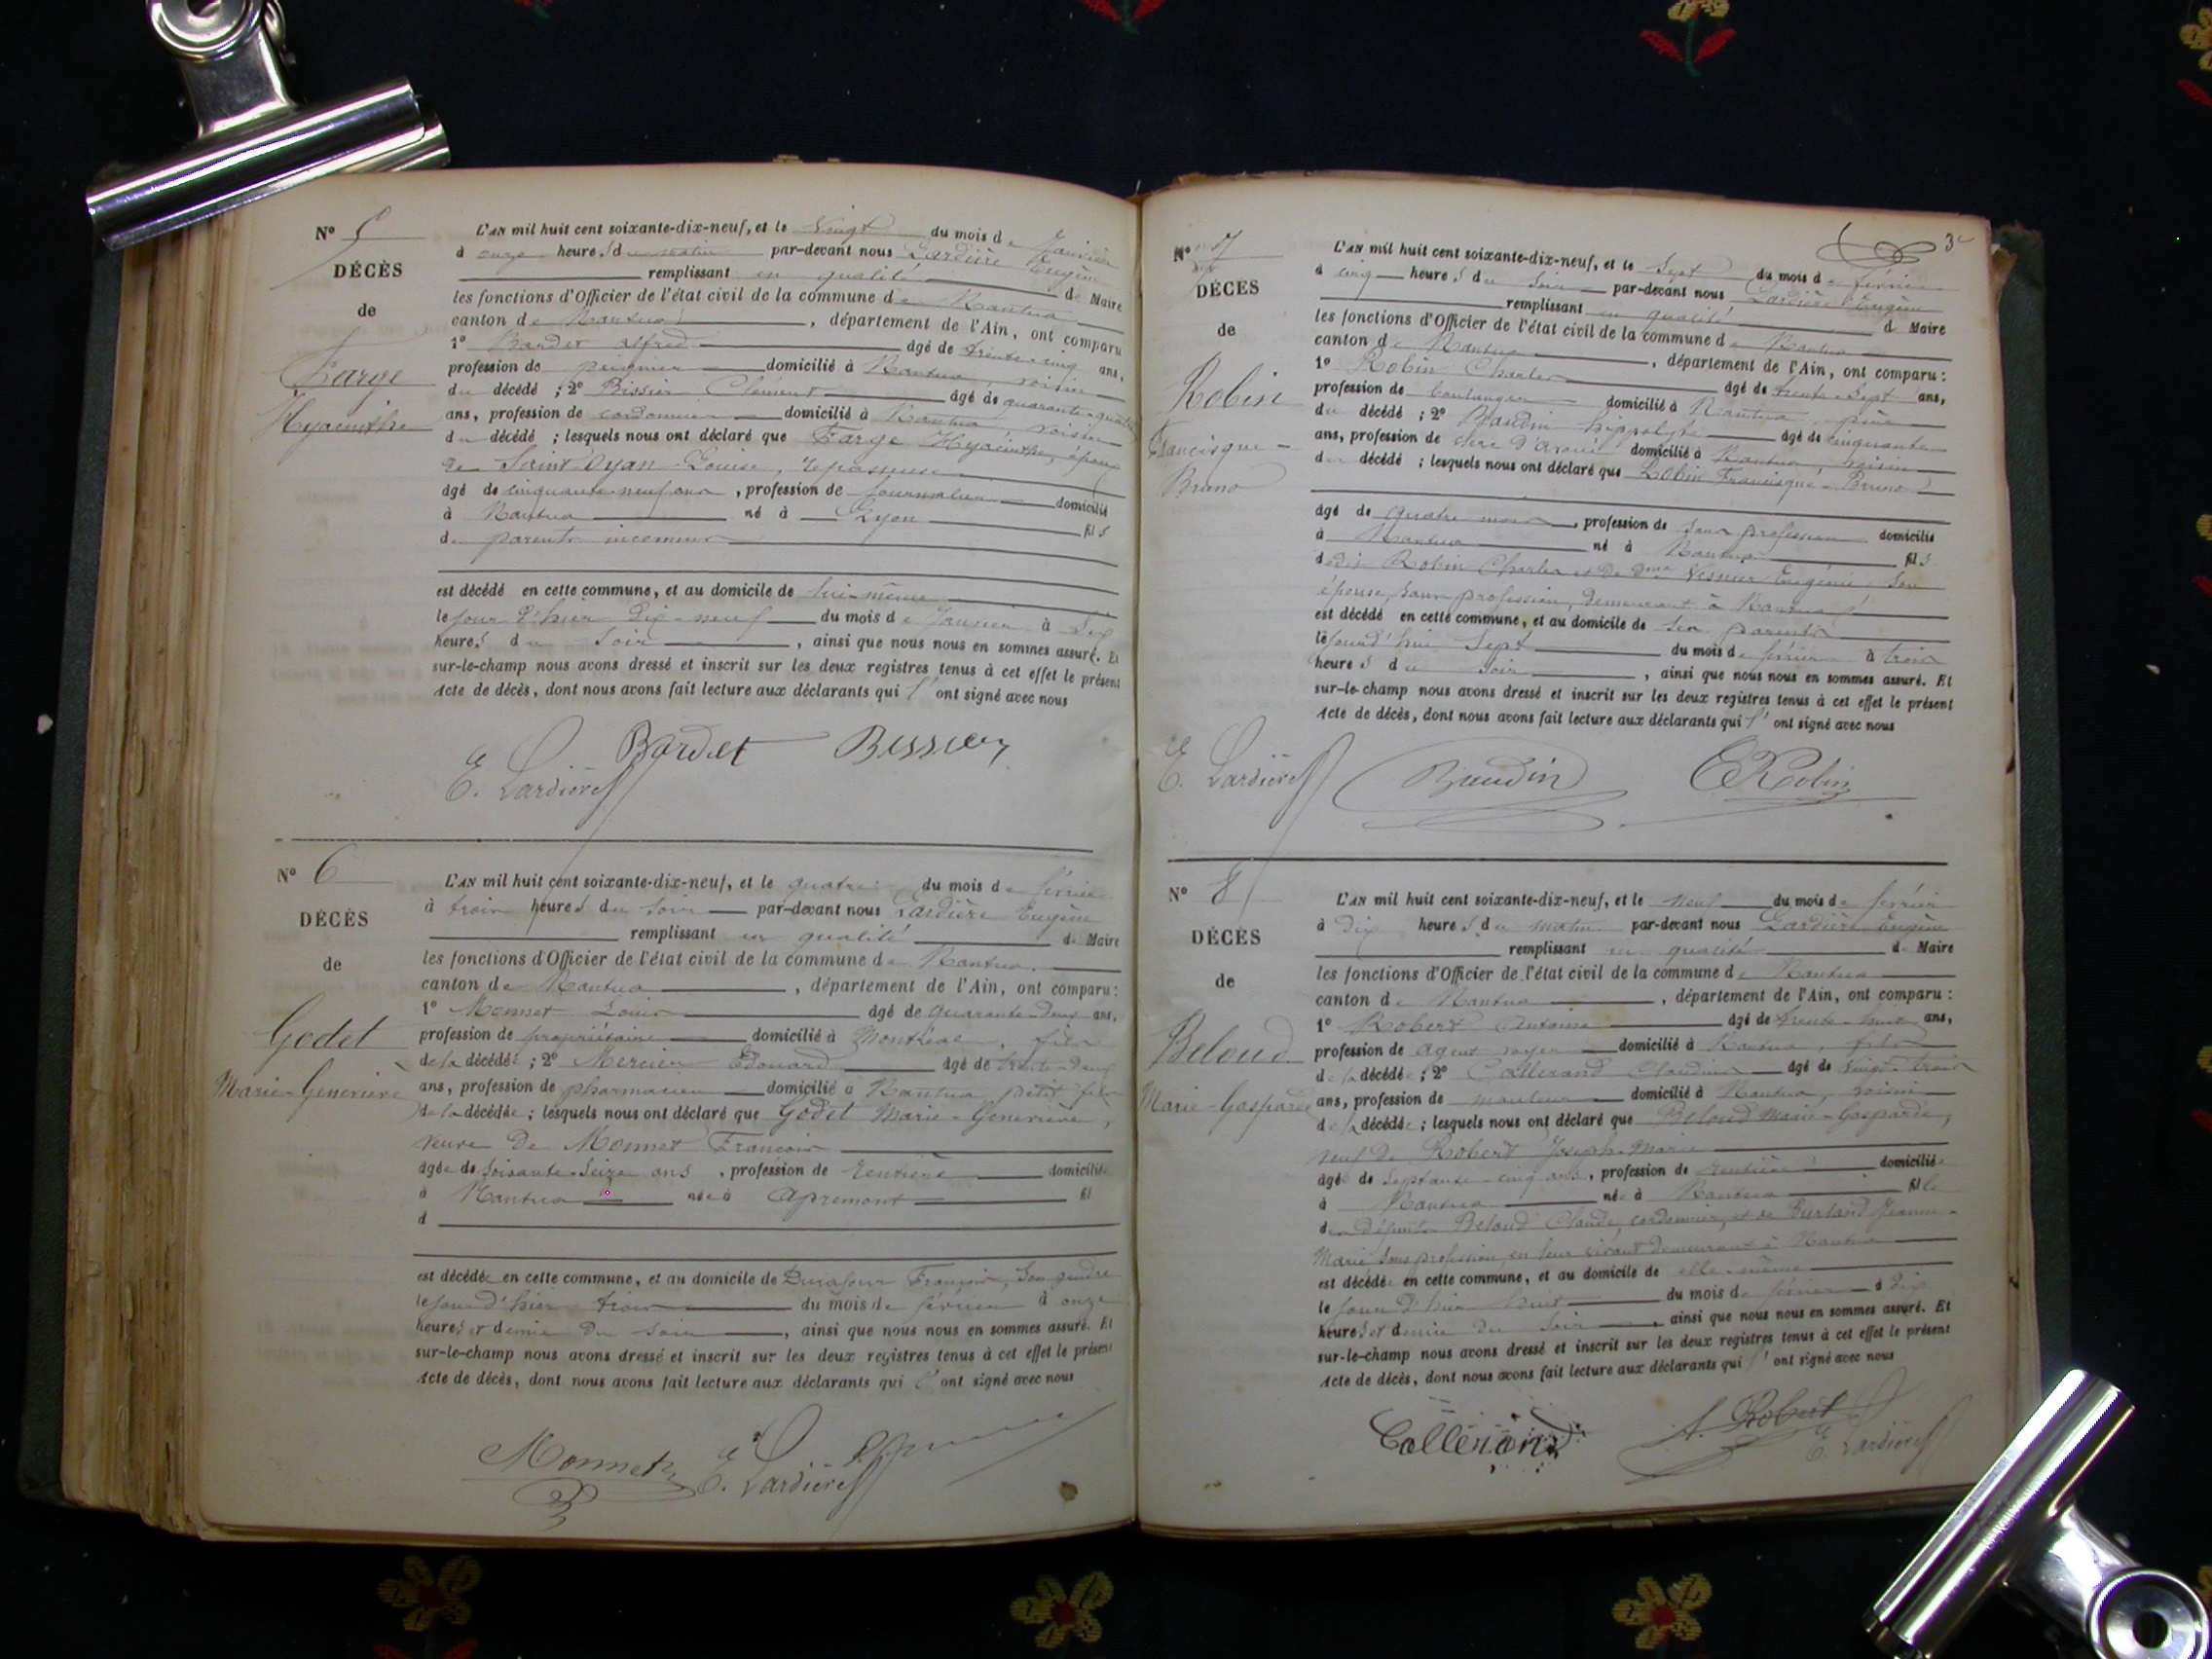 N° 5
DÉCÈS
de
Farge
Hyacinthe
L'AN mil huit cent soixante-dix-neuf, et le vingt du mois de Janvier
à onze heures du matin par-devant nous Lardière Eugène
remplissant en qualité de Maire
les fonctions d'Officier de l'état civil de la commune de Nantua
canton de Nantua, département de l'Ain, ont comparu
1° Bardet alfred âgé de trente-cinq ans,
profession de domicilié à Nantua, voisin
du décédé ; 2° Bissier Clément âgé de quarante-quatre
ans, profession de cordonnier domicilié à Nantua, voisin
du décédé ; lesquels nous ont déclaré que Farge Hyacinthe, époux
de Saint Oyan Louise, repasseuse
âgé de cinquante-neuf ans, profession de journalier domicilié
à Nantua né à Lyon fils
de parents inconnus
est décédé en cette commune, et au domicile de lui-même
le jour d'hier dix-neuf du mois de Janvier à
heures du soir, ainsi que nous nous en sommes assuré. Et
sur-le-champ nous avons dressé et inscrit sur les deux registres tenus à cet effet le présent
Acte de décès, dont nous avons fait lecture aux déclarants qui l' ont signé avec nous
Bardet Bissier
E. Lardière
N° 6
DÉCÈS
de
Godet
Marie-Geneviève
L'AN mil huit cent soixante-dix-neuf, et le quatre du mois de février
à trois heures du soir par-devant nous Lardière Eugène
remplissant en qualité de Maire
les fonctions d'Officier de l'état civil de la commune de Nantua
canton de Nantua, département de l'Ain, ont comparu :
1° Monnet Louis âgé de quarante-deux ans,
profession de propriétaire domicilié à Montréal, fils
de la décédée ; 2° Mercier Edouard âgé de trente-deux
ans, profession de pharmacien domicilié à Nantua petit fils
de la décédée ; lesquels nous ont déclaré que Godet Marie-Geneviève,
veuve de Monnet François
âgée de soixante-seize ans, profession de rentière domiciliée
à Nantua née à Apremont fil
d
est décédée en cette commune, et au domicile de Durafour François, son gendre
le jour d'hier trois du mois de février à onze
heures et demie du soir, ainsi que nous nous en sommes assuré. Et
sur-le-champ nous avons dressé et inscrit sur les deux registres tenus à cet effet le présent
Acte de décès, dont nous avons fait lecture aux déclarants qui l' ont signé avec nous
Monnet E. Lardière
3
N° 7
DÉCÈS
de
Robin
Francisque-
Bruno
L'AN mil huit cent soixante-dix-neuf, et le Sept du mois de février
à cinq heures du soir par-devant nous Lardière Eugène
remplissant en qualité de Maire
les fonctions d'Officier de l'état civil de la commune de Nantua
canton de Nantua, département de l'Ain, ont comparu :
1° Robin Charles âgé de trente-sept ans,
profession de boulanger domicilié à Nantua, père
du décédé ; 2° Baudin hippolyte âgé de cinquante
ans, profession de clerc d'avoué domicilié à Nantua, voisin
du décédé ; lesquels nous ont déclaré que Robin Francisque-Bruno
âgé de quatre mois, profession de sans profession domicilié
à Nantua né à Nantua fils
dudit Robin Charles et de dme Eugénie son
épouse, sans profession, demeurant à Nantua
est décédé en cette commune, et au domicile de ses parents
le jourd'hui Sept du mois de février à trois
heures du soir, ainsi que nous nous en sommes assuré. Et
sur-le-champ nous avons dressé et inscrit sur les deux registres tenus à cet effet le présent
Acte de décès, dont nous avons fait lecture aux déclarants qui l' ont signé avec nous
E. Lardière Baudin CRobin
N° 8
DÉCÈS
de
Beloud
Marie-Gasparde
L'AN mil huit cent soixante-dix-neuf, et le neuf du mois de février
à dix heures du matin par-devant nous Lardière Eugène
remplissant en qualité de Maire
les fonctions d'Officier de l'état civil de la commune de Nantua
canton de Nantua, département de l'Ain, ont comparu :
1° Robert Antoine âgé de trente-huit ans,
profession de agent voyer domicilié à Nantua, fils
de la décédée ; 2° Collerand Claudius âgé de vingt-trois
ans, profession de domicilié à Nantua, voisin
de la décédée ; lesquels nous ont déclaré que Beloud Marie-Gasparde,
veuf de Robert Joseph-Marie
âgée de septante-cinq ans, profession de rentière domiciliée
à Nantua née à Nantua fille
des défunts Beloud Claude, cordonnier, et de Jeanne-
Marie sans profession, en leur vivant demeurant à Nantua
est décédée en cette commune, et au domicile de elle-même
le jour d'hier huit du mois de février à dix
heures et demie du soir, ainsi que nous nous en sommes assuré. Et
sur-le-champ nous avons dressé et inscrit sur les deux registres tenus à cet effet le présent
Acte de décès, dont nous avons fait lecture aux déclarants qui l' ont signé avec nous
Collerand A. Robert
E. Lardière